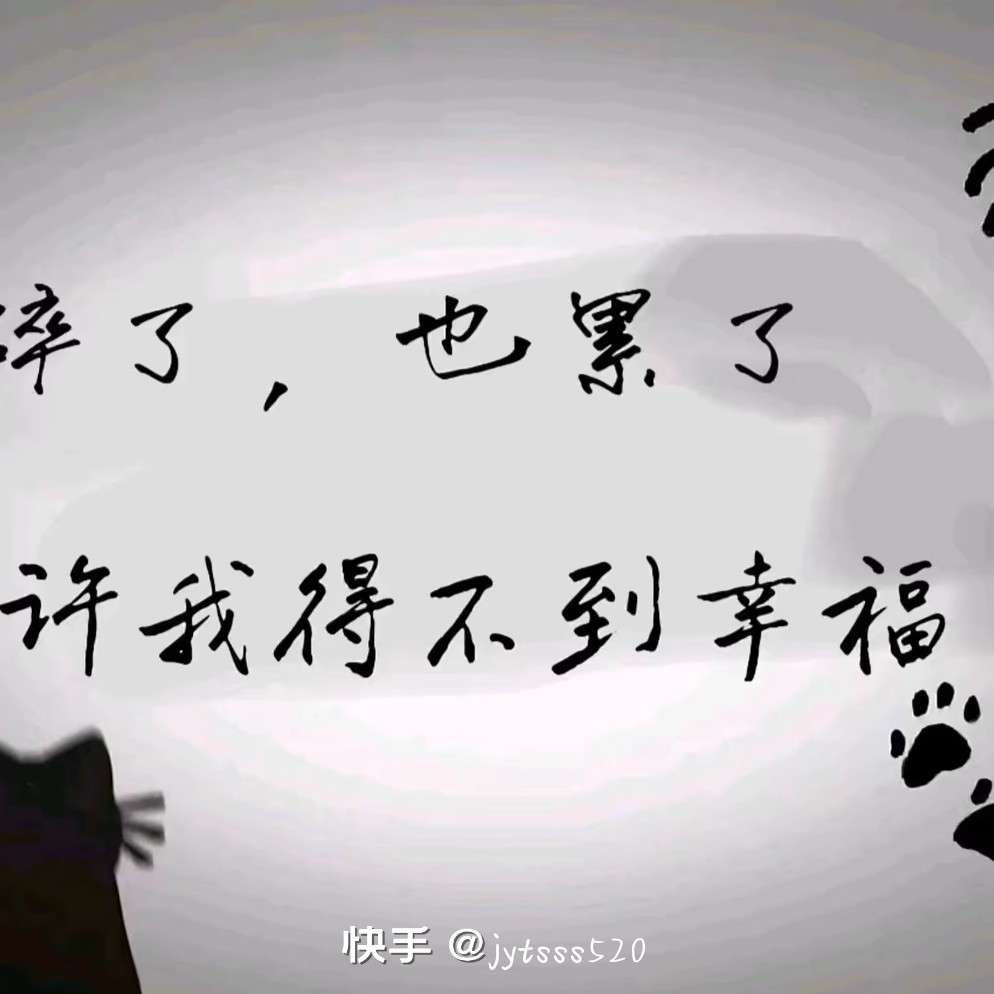 碎了，也累了
许我得不到幸福
快手 @jytsss520